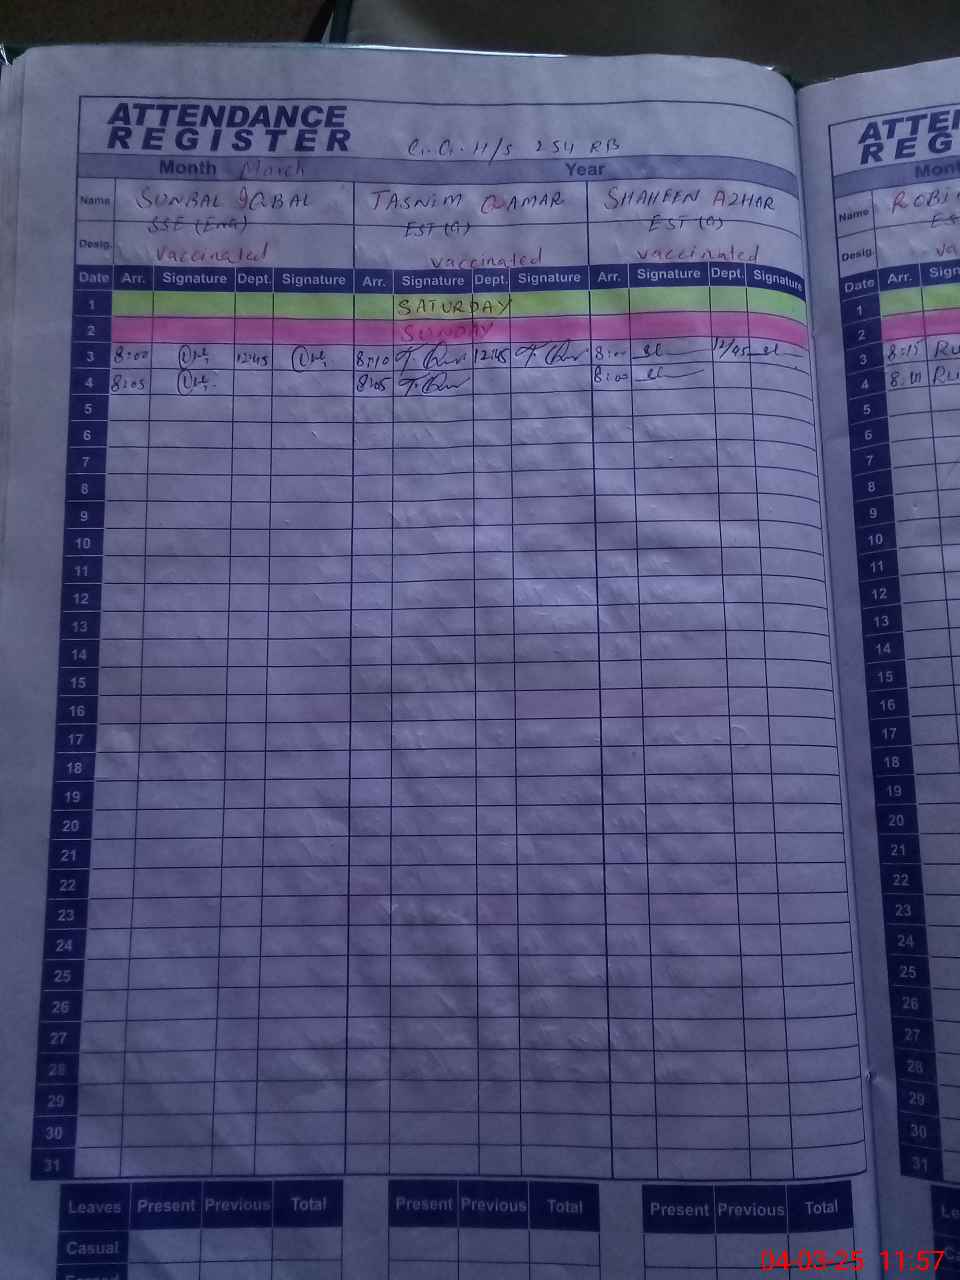 ATTENDANCE
REGISTER
G.G.H/S 254 RB
Month March Year
Name SUNBAL IQBAL TASNIM QAMAR SHAHEEN AZHAR
SSE (ENG) EST (G) EST (G)
Desig. vaccinated vaccinated vaccinated
Date Arr. Signature Dept. Signature Arr. Signature Dept. Signature Arr. Signature Dept. Signature
1 SATURDAY
2 SUNDAY
3 8:00 12:45 8:10 12:45 8:00 12/45
4 8:05 8:05 8:00
5
6
7
8
9
10
11
12
13
14
15
16
17
18
19
20
21
22
23
24
25
26
27
28
29
30
31
Leaves Present Previous Total Present Previous Total Present Previous Total
Casual
ATTEN
REG
Mont
Name ROBI
Desig. va
Date Arr. Sign
1
2
3 8:15 Ru
4 Ru
5
6
7
8
9
10
11
12
13
14
15
16
17
18
19
20
21
22
23
24
25
26
27
28
29
30
31
Le
04-03-25 11:57